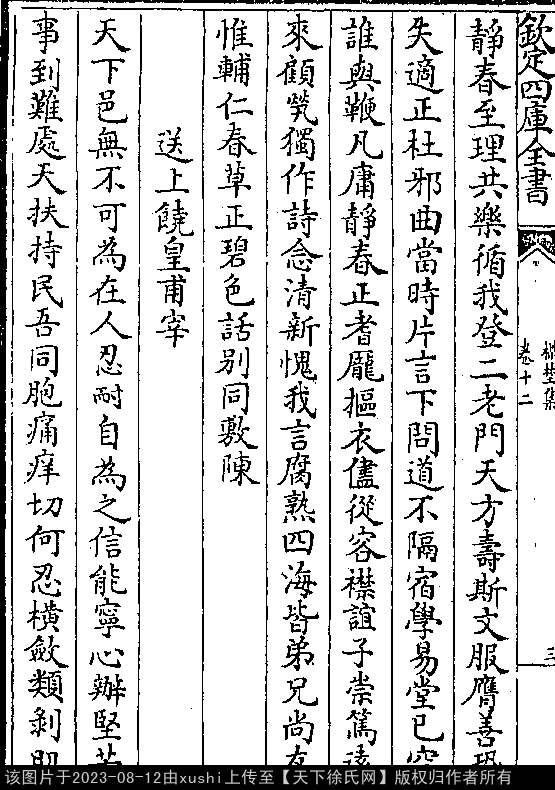 欽定四庫全書
卷十二
三
靜春至理共樂循我登二老門天方壽斯文服膺善
失適正杜邪曲當時片言下問道不隔宿學易堂已
誰與鞭凡庸靜春正耆龐摳衣儘從容襟誼子崇篤
來顧煢獨作詩念清新愧我言腐熟四海皆弟兄尚
惟輔仁春草正碧色話别同敷陳
送上饒皇甫宰
天下邑無不可為在人忍耐自為之信能寧心辦堅
事到難處天扶持民吾同胞痛痒切何忍橫斂類剥
该图片于2023-08-12由xushi上传至【天下徐氏网】版权归作者所有